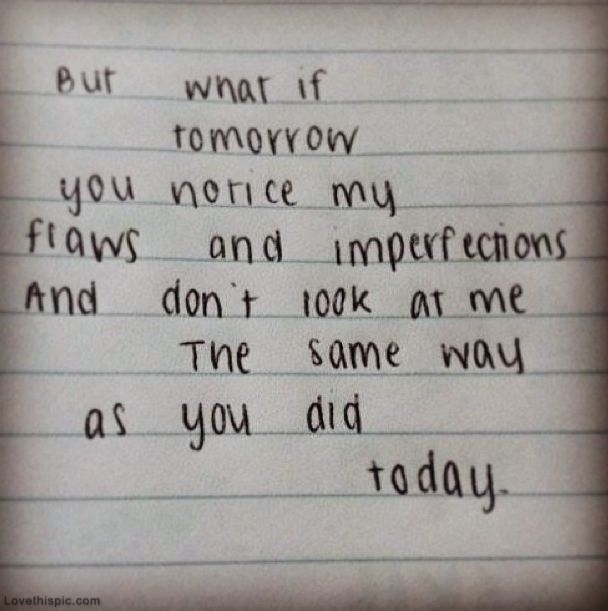 But what if
tomorrow
you notice my
flaws and imperfections
And don't look at me
The same way
as you did
today.
Lovethispic.com